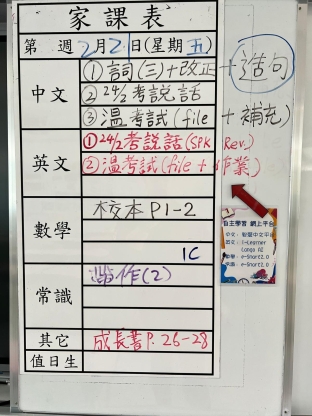 家課表
第 週 2月21日(星期五)
中文
① 詞(三)+改正+造句
② 24/2考說話
③ 溫考試(file + 補充)
英文
① 24/2考說話(SPK Rev.)
② 溫考試(file + 作業)
數學
校本 P1-2
1C
常識
作(2)
其它
成長書P. 26-28
值日生
自主學習 網上平台
i-Learner